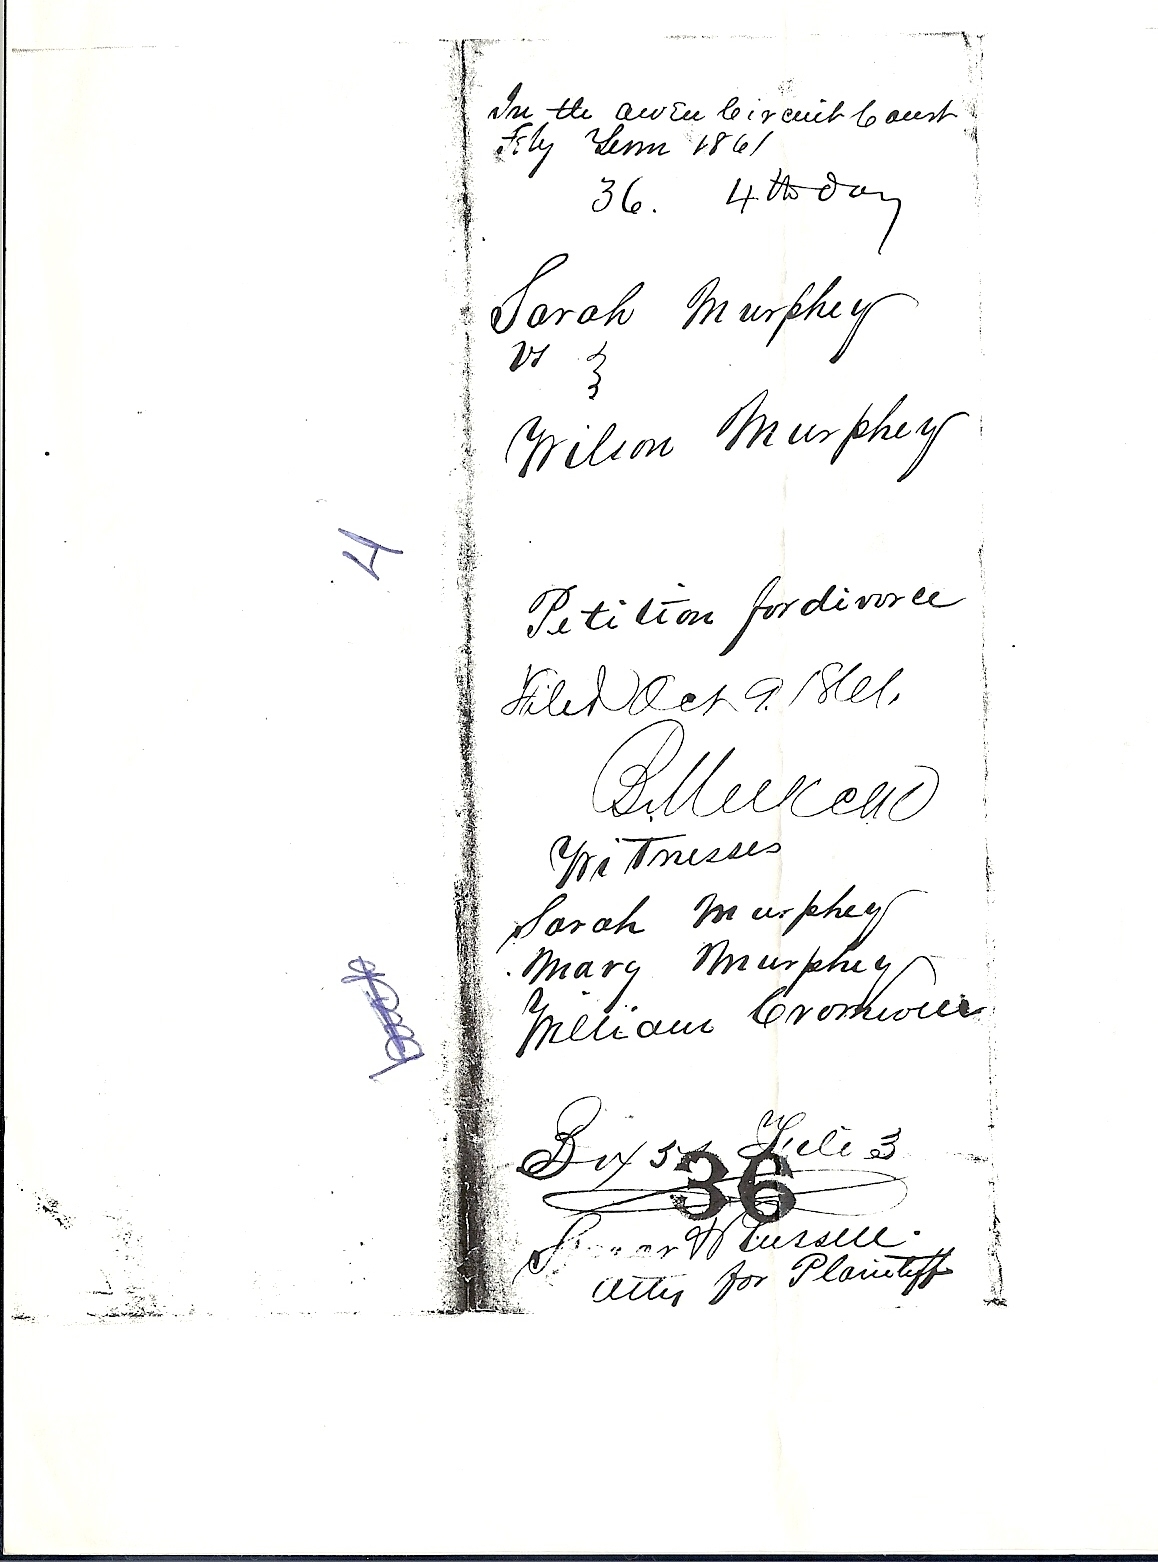 In the Owen Circuit Court
Feby Term 1861
36. 4th day
Sarah Murphey
vs
Wilson Murphey
Petition for divorce
Filed Oct 9. 1861.
Witnesses
Sarah Murphey
Mary Murphey
William Cromwell
Box File 3
36
Russell.
Atty for Plaintiff
4